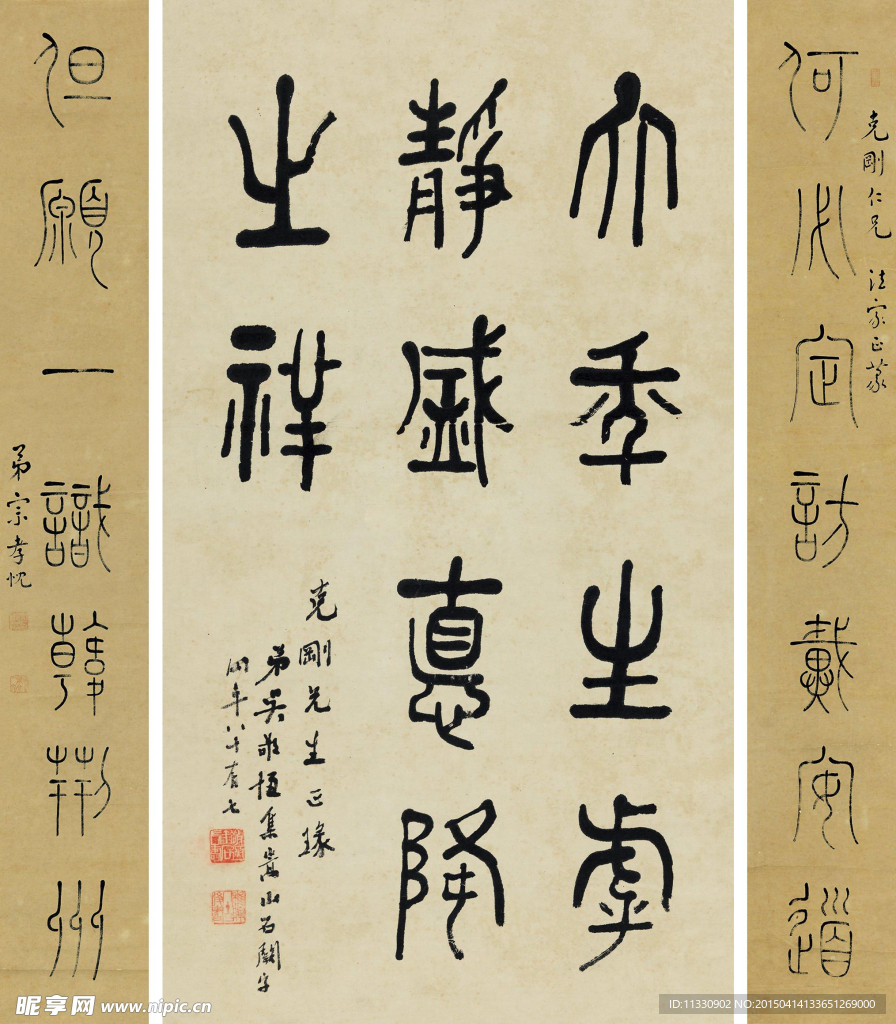 克剛仁兄 法家正篆
何必定訪戴安道
大秊生虖
靜盛悳降
之祥
克剛先生正瑑
弟吳敬恆集嵩山石闕字
時年八十有七
但願一識韓荊州
弟宗孝忱
昵享网 www.nipic.cn
ID:11330902 NO:20150414133651269000